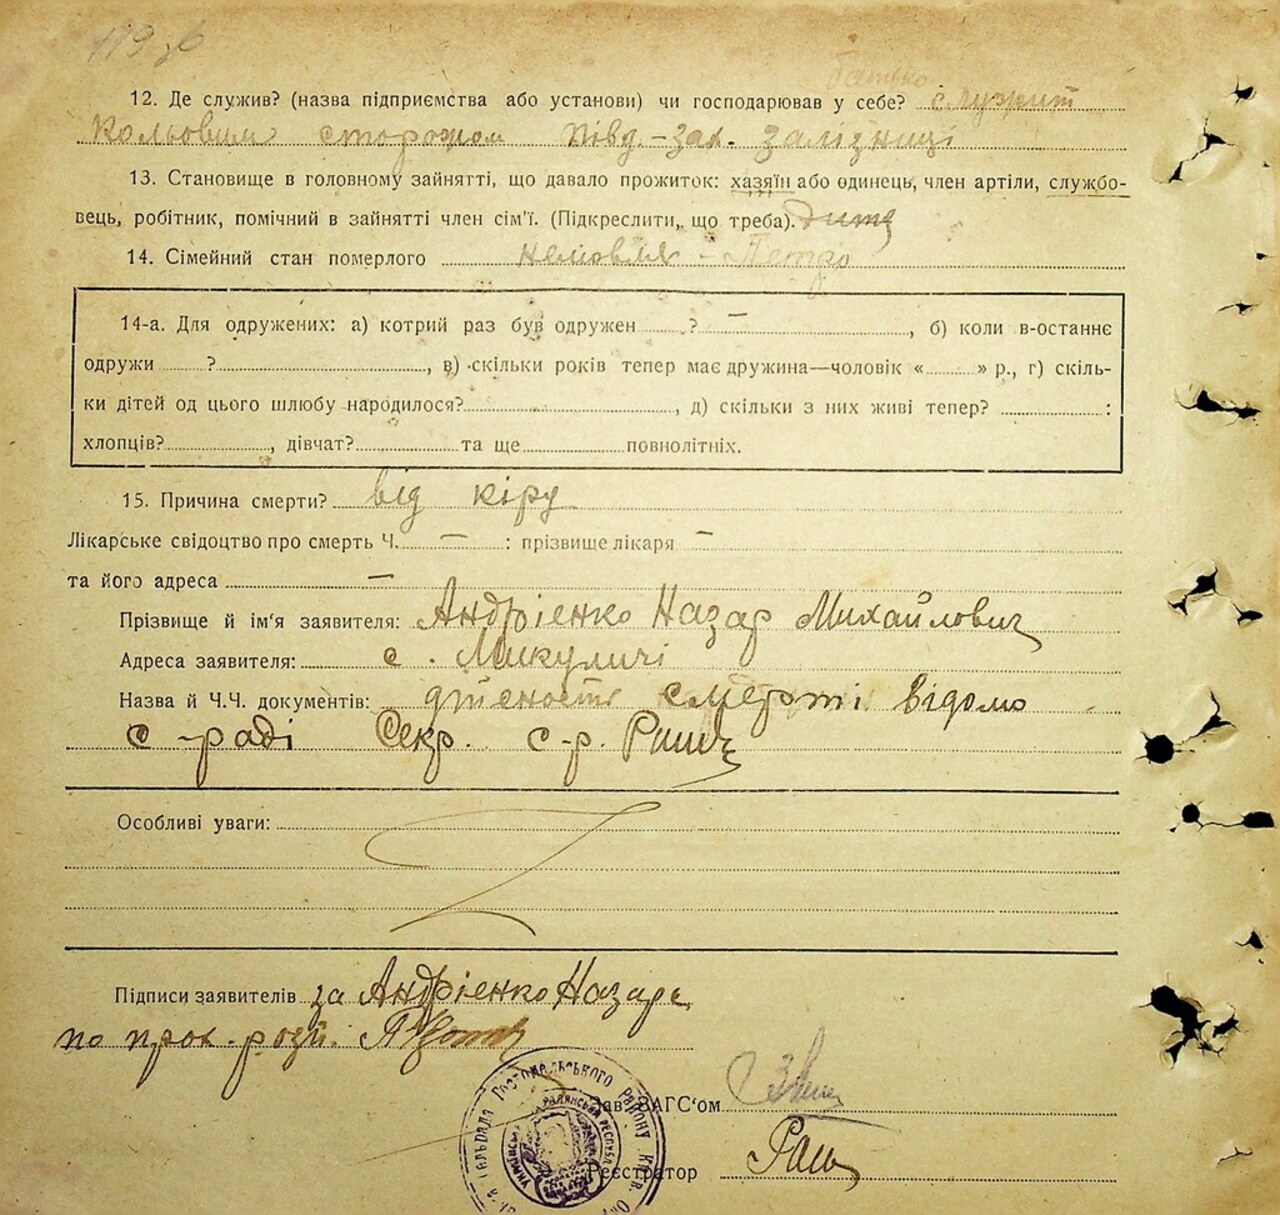 119 зв
батько
12. Де служив? (назва підприємства або установи) чи господарював у себе? служит
Кольовим сторожом Півд.-Зах. Залізниці
13. Становище в головному зайнятті, що давало прожиток: хазяїн або одинець, член артіли, службо-
вець, робітник, помічний в зайнятті член сім'ї. (Підкреслити, що треба). дитя
14. Сімейний стан померлого немовля -
14-а. Для одружених: а) котрий раз був одружен ? —, б) коли в-останнє
одружи ?, в) скільки років тепер має дружина—чоловік « » р., г) скіль-
ки дітей од цього шлюбу народилося?, д) скільки з них живі тепер? :
хлопців?, дівчат? та ще повнолітніх.
15. Причина смерти? від кіру
Лікарське свідоцтво про смерть Ч. — : прізвище лікаря —
та його адреса —
Прізвище й ім'я заявителя: Андрієнко Назар Михайлович
Адреса заявителя: с. Микуличі
Назва й Ч.Ч. документів: смерті відомо
с-раді Секр. с-р.
Особливі уваги:
Підписи заявителів за Андрієнко Назара
по прох. розп.
Зав. ЗАГС'ом
Реєстратор
Гостомельського Району